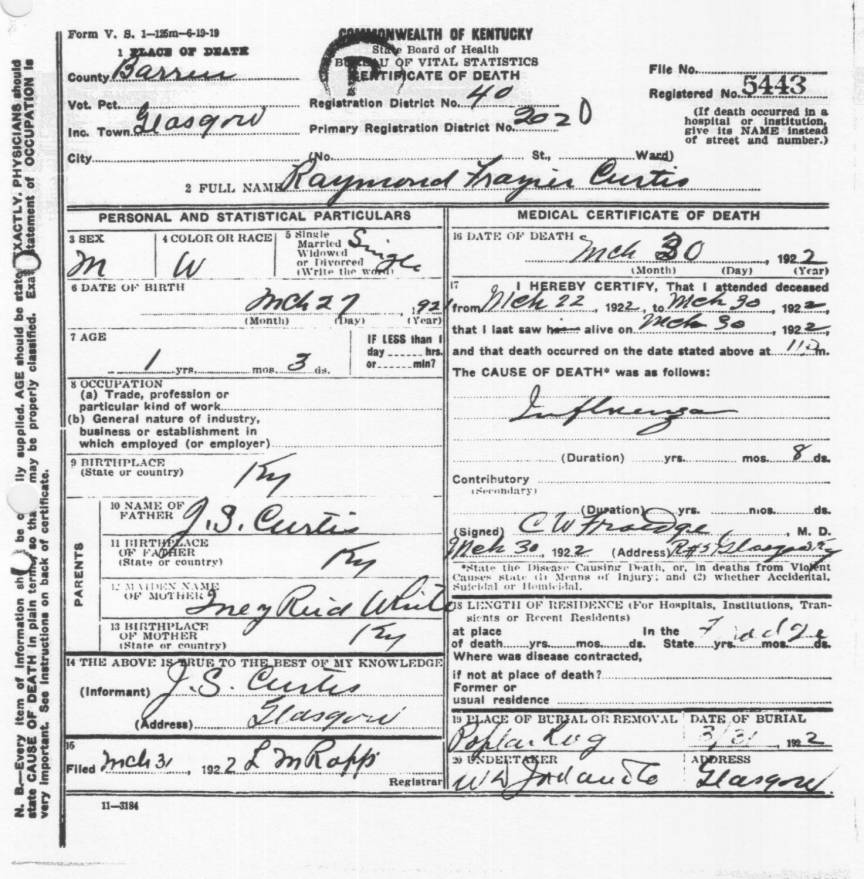 Form V. S. 1—125m—6-19-19
COMMONWEALTH OF KENTUCKY
State Board of Health
BUREAU OF VITAL STATISTICS
CERTIFICATE OF DEATH
1 PLACE OF DEATH
County Barren
Vot. Pct.
Inc. Town Glasgow
City (No. St., Ward)
Registration District No. 40
Primary Registration District No. 2020
File No.
Registered No. 5443
(If death occurred in a
hospital or institution,
give its NAME instead
of street and number.)
2 FULL NAME Raymond Frazier Curtis
PERSONAL AND STATISTICAL PARTICULARS
3 SEX
M
4 COLOR OR RACE
W
5 Single
Married
Widowed
or Divorced
(Write the word)
Single
6 DATE OF BIRTH
Mch 27, 1921
(Month) (Day) (Year)
7 AGE
1 yrs. mos. 3 ds.
IF LESS than 1
day hrs.
or min?
8 OCCUPATION
(a) Trade, profession or
particular kind of work
(b) General nature of industry,
business or establishment in
which employed (or employer)
9 BIRTHPLACE
(State or country)
Ky
PARENTS
10 NAME OF
FATHER
J. S. Curtis
11 BIRTHPLACE
OF FATHER
(State or country)
Ky
12 MAIDEN NAME
OF MOTHER
Iney Reid White
13 BIRTHPLACE
OF MOTHER
(State or country)
Ky
14 THE ABOVE IS TRUE TO THE BEST OF MY KNOWLEDGE
(Informant) J. S. Curtis
(Address) Glasgow
15
Filed Mch 31, 1922 L M Rapp
Registrar
11—3184
MEDICAL CERTIFICATE OF DEATH
16 DATE OF DEATH
Mch 30, 1922
(Month) (Day) (Year)
17 I HEREBY CERTIFY, That I attended deceased
from Mch 22, 1922, to Mch 30, 1922,
that I last saw him alive on Mch 30, 1922,
and that death occurred on the date stated above at m.
The CAUSE OF DEATH* was as follows:
Influenza
(Duration) yrs. mos. 8 ds.
Contributory
(Secondary)
(Duration) yrs. mos. ds.
(Signed) C W Froedge, M. D.
Mch 30, 1922 (Address) Glasgow Ky
*State the Disease Causing Death, or, in deaths from Violent
Causes state (1) Means of Injury; and (2) whether Accidental,
Suicidal or Homicidal.
18 LENGTH OF RESIDENCE (For Hospitals, Institutions, Transients
or Recent Residents)
at place In the
of death yrs. mos. ds. State yrs. mos. ds.
Where was disease contracted,
if not at place of death?
Former or
usual residence
19 PLACE OF BURIAL OR REMOVAL
Poplar Log
DATE OF BURIAL
3/31 1922
20 UNDERTAKER
ADDRESS
Glasgow
N. B.—Every item of information should be carefully supplied. AGE should be stated EXACTLY. PHYSICIANS should
state CAUSE OF DEATH in plain terms, so that it may be properly classified. Exact statement of OCCUPATION is
very important. See instructions on back of certificate.